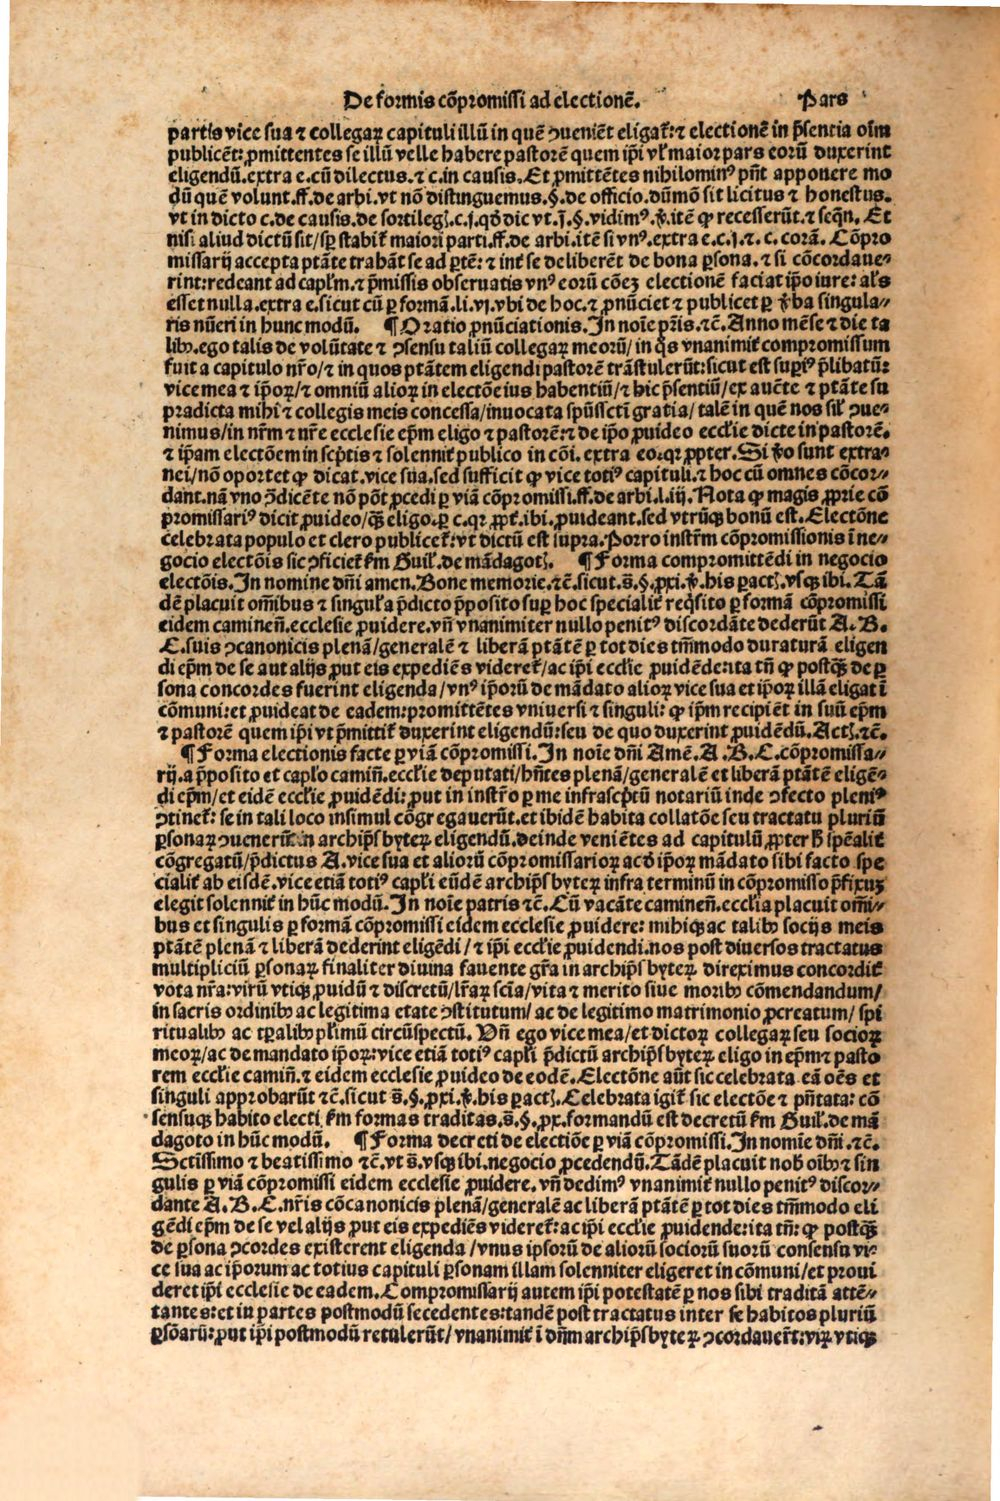 De formis cōpromissi ad electionē. Pars
partis vice sua ⁊ collegaꝝ capituli illū in quē ꝯueniēt eligat̄: ⁊ electionē in p̄sentia oīm
publicēt: ꝓmittentes se illū velle habere pastorē quem ip̄i vl̓ maior pars eorū duxerint
eligendū. extra e. cū dilectus. ⁊ c. in causis. Et ꝓmittētes nihilominꝰ pn̄t apponere mo
dū quē volunt. ff. de arbi. vt nō distinguemus. §. de officio. dūmō sit licitus ⁊ honestus.
vt in dicto c. de causis. de sortileg. c. j. qd̓ dic vt. j. §. vidimꝰ. v̓. itē ꝙ recesserūt. ⁊ seqn̄. Et
nisi aliud dictū sit/ sp̄ stabit̄ maiori parti. ff. de arbi. itē si vnꝰ. extra e. c. j. ⁊. c. corā. Cōpro
missarij accepta ptāte trahāt se ad ꝑtē: ⁊ int̓ se deliberēt de bona ꝑsona. ⁊ si cōcordaue⸗
rint: redeant ad capl̓m. ⁊ p̄missis obseruatis vnꝰ eorū cōeꝫ electionē faciat ip̄o iure: al̓s
esset nulla. extra e. sicut cū ꝑ formā. li. vj. vbi de hoc. ⁊ ꝓnūciet ⁊ publicet ꝑ v̓ba singula⸗
ris nūeri in hunc modū. ¶ Oratio ꝓnūciationis. In noīe pr̄is. ⁊c̄. Anno mēse ⁊ die ta
libꝰ. ego talis de volūtate ⁊ ꝯsensu taliū collegaꝝ meorū/ in qd̓s vnanimit̓ compromissum
fuit a capitulo nr̄o/ ⁊ in quos ptātem eligendi pastorē trāstulerūt: sicut est supꝰ p̄libatū:
vice mea ⁊ ip̄oꝝ/ ⁊ omniū alioꝝ in electōe ius habentiū/ ⁊ hic p̄sentiū/ ex aucte ⁊ ptāte su
pradicta mihi ⁊ collegis meis concessa/ inuocata sp̄ūsscti gratia/ talē in quē nos sil̓ ꝯue⸗
nimus/ in nr̄m ⁊ nr̄e ecclesie ep̄m eligo ⁊ pastorē: ⁊ de ip̄o ꝓuideo eccl̓ie dicte in pastorē.
⁊ ip̄am electōem in sc̄ptis ⁊ solennit̓ publico in cōi. extra eo. qꝛ ꝓpter. Si v̓o sunt extra⸗
nei/ nō oportet ꝙ dicat. vice sua. sed sufficit ꝙ vice totiꝰ capituli. ⁊ hoc cū omnes cōcor⸗
dant. nā vno ꝯdicēte nō pōt ꝓcedi ꝑ viā cōpromissi. ff. de arbi. l. iij. Nota ꝙ magis ꝓprie cō
promissariꝰ dicit ꝓuideo/ qꝫ eligo. ꝑ c. qꝛ ꝓpt̓. ibi. ꝓuideant. sed vtrūqꝫ bonū est. Electōne
celebrata populo et clero publicet̄: vt dictū est supra. Porro instr̄m cōpromissionis ī ne⸗
gocio electōis sic ꝯficiet̄ k̄m Guil̓. de mādagot. ¶ Forma compromittēdi in negocio
electōis. In nomine dn̄i amen. Bone memorie. ⁊c̄. sicut. s̄. §. pxi. v̓. his ꝑact. vsqꝫ ibi. Tā
dē placuit om̄ibus ⁊ singul̓a p̄dicto p̄posito suꝑ hoc specialit̓ reqd̓sito ꝑ formā cōpromissi
eidem caminen̄. ecclesie ꝓuidere. vn̄ vnanimiter nullo penitꝰ discordāte dederūt A. B.
C. suis ꝯcanonicis plenā/ generalē ⁊ liberā ptātē ꝑ tot dies tm̄modo duraturā eligen
di ep̄m de se aut alijs ꝓut eis expediēs videret̄/ ac ip̄i eccl̓ie ꝓuidēdē: ita tn̄ ꝙ postqꝫ de ꝑ
sona concordes fuerint eligenda/ vnꝰ ip̄orū de mādato alioꝝ vice sua et ip̄oꝝ illā eligat ī
cōmuni: et ꝓuideat de eadem: promittētes vniuersi ⁊ singuli: ꝙ ip̄m recipiēt in suū ep̄m
⁊ pastorē quem ip̄i vt p̄mittit̄ duxerint eligendū: seu de quo duxerint ꝓuidēdū. Act. ⁊c̄.
¶ Forma electionis facte ꝑ viā cōpromissi. In noīe dn̄i Amē. A. B. C. cōpromissa⸗
rij. a p̄posito et capl̓o camin̄. eccl̓ie deputati/ hn̄tes plenā/ generalē et liberā ptātē eligē⸗
di ep̄m/ et eidē eccl̓ie ꝓuidēdi: ꝓut in instr̄o ꝑ me infrascp̄tū notariū inde ꝯfecto pleniꝰ
ꝯtinet̄: se in tali loco insimul cōgregauerūt. et ibidē habita collatōe seu tractatu pluriū
ꝑsonaꝝ ꝯuenerūt in archip̄sbyteꝝ eligendū. deinde veniētes ad capitulū ꝓpter h̄ sp̄ealit̓
cōgregatū/ p̄dictus A. vice sua et aliorū cōpromissarioꝝ ac d̓ ip̄oꝝ mādato sibi facto spe
cialit̓ ab eisdē. vice etiā totiꝰ capl̓i eūdē archip̄sbyteꝝ infra terminū in cōpromisso p̄fixuꝫ
elegit solennit̓ in hūc modū. In noīe patris ⁊c̄. Cū vacāte caminen̄. eccl̓ia placuit om̄i⸗
bus et singulis ꝑ formā cōpromissi eidem ecclesie ꝓuidere: mihiqꝫ ac talibꝰ socijs meis
ptātē plenā ⁊ liberā dederint eligēdi/ ⁊ ip̄i eccl̓ie ꝓuidendi. nos post diuersos tractatus
multipliciū ꝑsonaꝝ finaliter diuina fauente gr̄a in archip̄sbyteꝝ direximus concordit̓
vota nr̄a: virū vtiqꝫ ꝓuidū ⁊ discretū/ lr̄aꝝ sciā/ vita ⁊ merito siue moribꝰ cōmendandum/
in sacris ordinibꝰ ac legitima etate ꝯstitutum/ ac de legitimo matrimonio ꝓcreatum/ spi
ritualibꝰ ac tꝑalibꝰ pl̓imū circūspectū. Vn̄ ego vice mea/ et dictoꝝ collegaꝝ seu socioꝝ
meoꝝ/ ac de mandato ip̄oꝝ: vice etiā totiꝰ capl̓i p̄dictū archip̄sbyteꝝ eligo in ep̄m ⁊ pasto
rem eccl̓ie camin̄. ⁊ eidem ecclesie ꝓuideo de eodē. Electōne aūt sic celebrata eā oēs et
singuli approbarūt ⁊c̄. sicut s̄. §. pxi. v̓. his ꝑact. Celebrata igit̄ sic electōe ⁊ pn̄tata: cō
sensuqꝫ habito electi k̄m formas traditas. s̄. §. px. formandū est decretū k̄m Guil̓. de mā
dagoto in hūc modū. ¶ Forma decreti de electiōe ꝑ viā cōpromissi. In nomīe dn̄i. ⁊c̄.
Sctissimo ⁊ beatissimo ⁊c̄. vt s̄. vsqꝫ ibi. negocio ꝓcedendū. Tādē placuit nob̓ oībꝰ ⁊ sin
gulis ꝑ viā cōpromissi eidem ecclesie ꝓuidere. vn̄ dedimꝰ vnanimit̓ nullo penitꝰ discor⸗
dante A. B. C. nr̄is cōcanonicis plenā/ generalē ac liberā ptātē ꝑ tot dies tm̄modo eli
gēdi ep̄m de se vel alijs ꝓut eis expediēs videret̄: ac ip̄i eccl̓ie ꝓuidende: ita tn̄: ꝙ postqꝫ
de ꝑsona ꝯcordes existerent eligenda/ vnus ipsorū de aliorū sociorū suorū consensu vi⸗
ce sua ac ip̄orum ac totius capituli ꝑsonam illam solenniter eligeret in cōmuni/ et proui
deret ip̄i ecclesie de eadem. Compromissarij autem ip̄i potestatē ꝑ nos sibi traditā attē⸗
tantes: et in partes postmodū secedentes: tandē post tractatus inter se habitos pluriū
ꝑsōarū: ꝓut ip̄i postmodū retulerūt/ vnanimit̓ ī dn̄m archip̄sbyteꝝ ꝯcordauer̄t: viꝝ vtiqꝫ